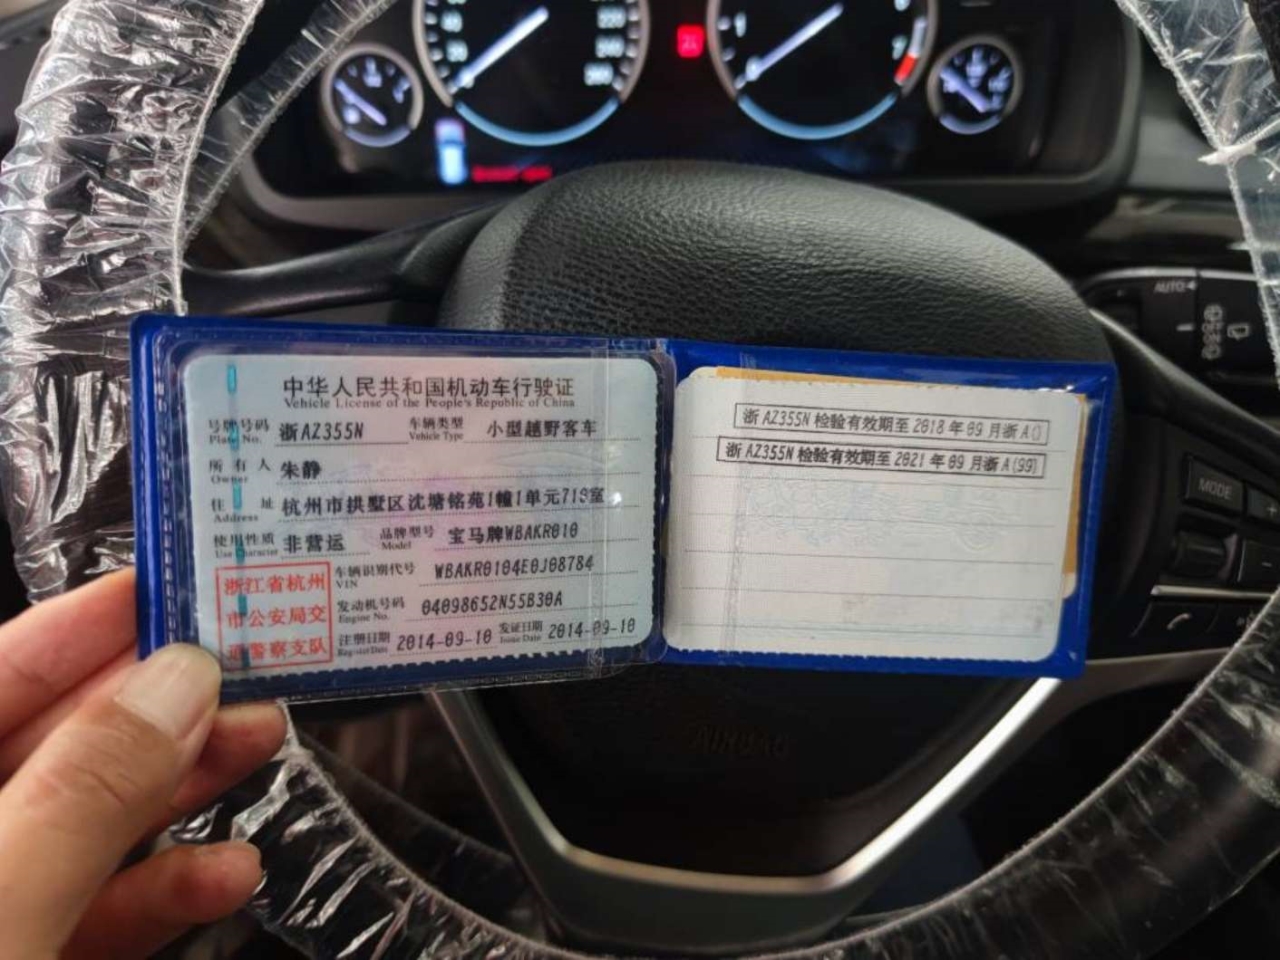 40
220
240
20
260
0
1
7
0
AUTO
MODE
中华人民共和国机动车行驶证
Vehicle License of the People's Republic of China
号牌号码 浙AZ355N 车辆类型 小型越野客车
Plate No. Vehicle Type
所有人 朱静
Owner
住址 杭州市拱墅区沈塘铭苑1幢1单元718室
Address
使用性质 非营运 品牌型号 宝马牌WBAKR010
Use Character Model
浙江省杭州
市公安局交
通警察支队
车辆识别代号 WBAKR0104E0J08784
VIN
发动机号码 04098652N55B30A
Engine No.
注册日期 2014-09-10 发证日期 2014-09-10
Register Date Issue Date
浙AZ355N检验有效期至2018年09月浙A()
浙AZ355N检验有效期至2021年09月浙A(99)
AIRBAG